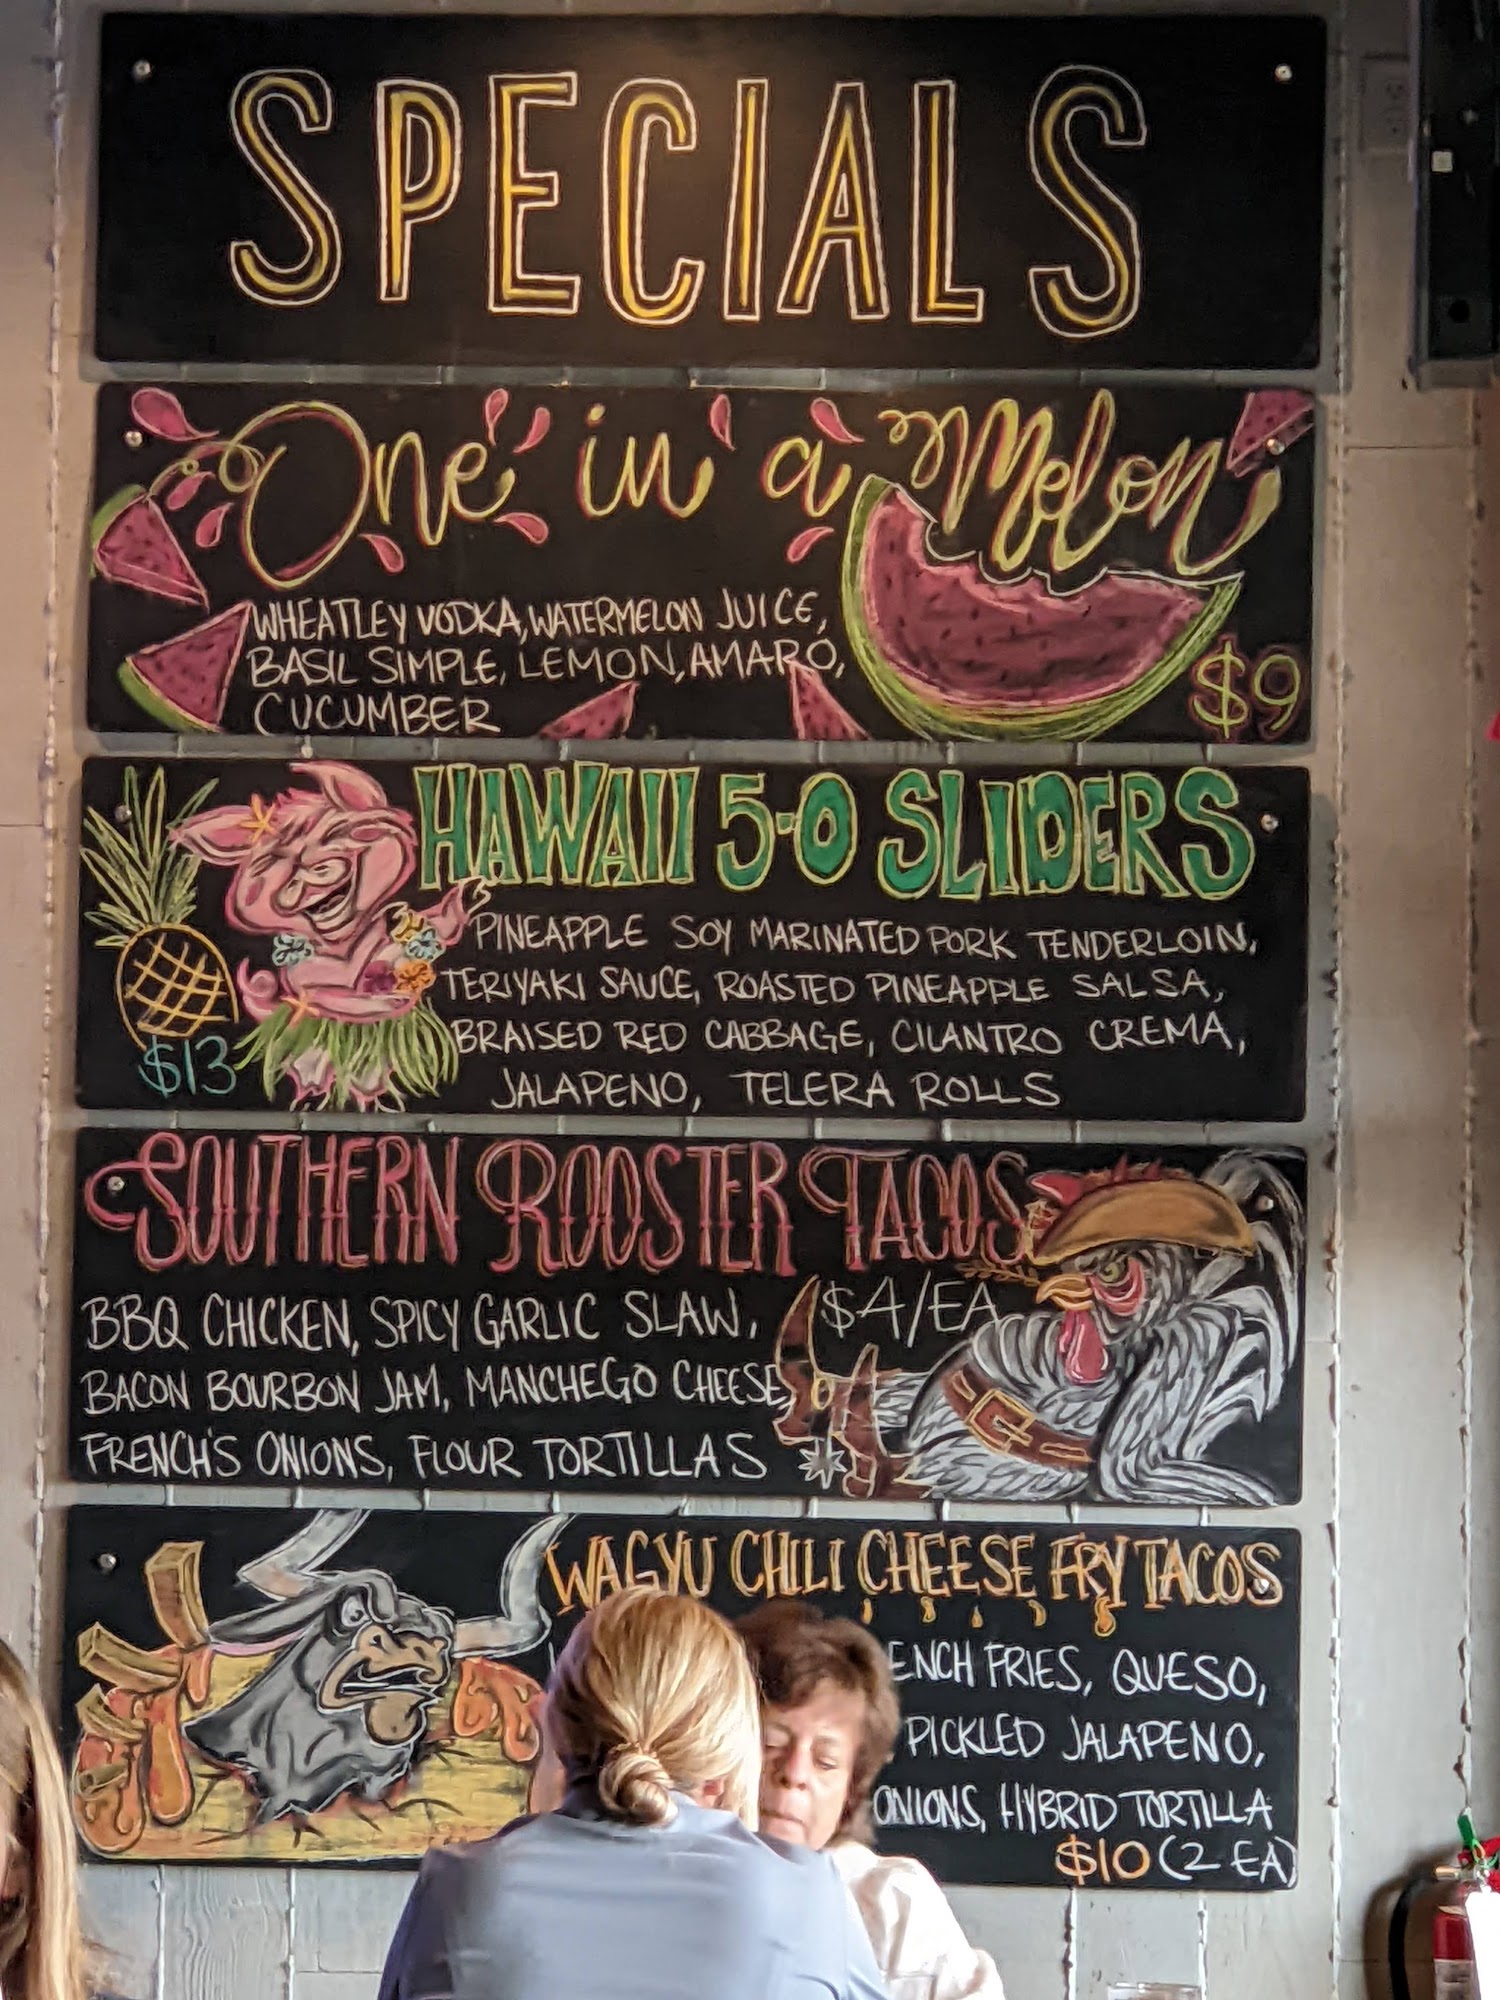 SPECIALS
One in a Melon
WHEATLEY VODKA, WATERMELON JUICE,
BASIL SIMPLE, LEMON, AMARO,
CUCUMBER
$9
HAWAII 5-0 SLIDERS
PINEAPPLE SOY MARINATED PORK TENDERLOIN,
TERIYAKI SAUCE, ROASTED PINEAPPLE SALSA,
BRAISED RED CABBAGE, CILANTRO CREMA,
JALAPENO, TELERA ROLLS
$13
SOUTHERN ROOSTER TACOS
$4/EA
BBQ CHICKEN, SPICY GARLIC SLAW,
BACON BOURBON JAM, MANCHEGO CHEESE,
FRENCH'S ONIONS, FLOUR TORTILLAS
WAGYU CHILI CHEESE FRY TACOS
ENCH FRIES, QUESO,
PICKLED JALAPENO,
ONIONS, HYBRID TORTILLA
$10 (2 EA)